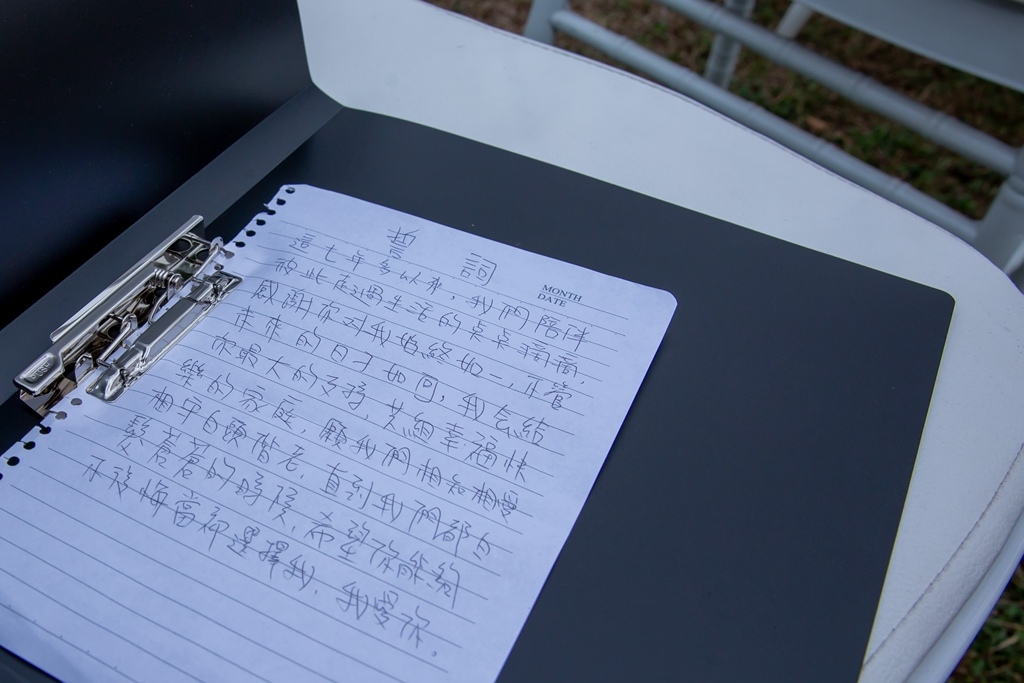 誓詞
MONTH
DATE
這七年多以來，我們陪伴
彼此在過生活的點點滴滴，
感謝你對我始終如一，不管
未來的日子如何，我會給
你最大的支持，共組幸福快
樂的家庭，願我們相知相愛
相守白頭偕老，直到我們都白
髮蒼蒼的時候，希望你能夠
不後悔當初選擇我，我愛你。